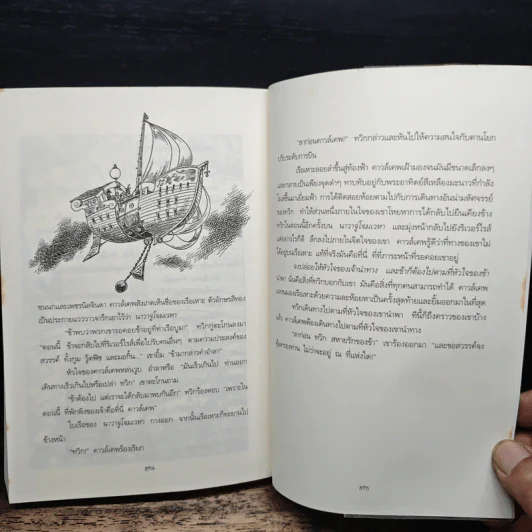 ขนนกและเพชรนิลจินดา คาวล์เดพสังเกตเห็นชื่อของเรือเหาะ ตัวอักษรสีทอง
เป็นประกายแวววาวจารึกเอาไว้ว่า นาวาจู่โจมเวหา
"ข้าพบว่าพวกเขารอคอยข้าอยู่ที่ท่าเรือบูม!" ทวิกกู่ตะโกนลงมา
"ตอนนี้ ข้าจะกลับไปที่ริเวอร์ไรส์เพื่อไปรับคนอื่นๆ ตามความประสงค์ของ
สวรรค์
เดินทางเร็วเกินไปหรือเปล่า ทวิก" เขาตะโกนถาม
"ข้าต้องไป แต่เราจะได้กลับมาพบกันอีก" ทวิกร้องตอบ "เพราะใน
ตอนนี้ ที่พักพิงของเจ้าคือที่นี่ คาวล์เดพ"
ใบเรือของ นาวาจู่โจมเวหา กางออก จากนั้นเรือเหาะก็ทะยานไป
ข้างหน้า
"ทวิก!" คาวล์เดพร้องเรียก
๕๗๔
"ลาก่อนคาวล์เดพ!" ทวิกกล่าวและหันไปให้ความสนใจกับคานโยก
ปรับระดับการบิน
เรือเหาะลอยลำขึ้นสู่ท้องฟ้า คาวล์เดพเฝ้ามองจนมันมีขนาดเล็กลงๆ
และกลายเป็นเพียงจุดดำๆ ทาบทับอยู่กับพระอาทิตย์สีเหลืองมะนาวที่กำลัง
โผล่ขึ้นมาเยี่ยมฟ้า การได้ติดสอยห้อยตามไปกับการเดินทางอันน่ามหัศจรรย์
ของทวิก ทำให้ส่วนหนึ่งภายในใจของเขาโหยหาการได้กลับไปยืนเคียงข้าง
ทวิกในตอนนี้อีกครั้งบน นาวาจู่โจมเวหา และมุ่งหน้ากลับไปยังริเวอร์ไรส์
แต่อย่างไรก็ดี ลึกลงไปภายในจิตใจของเขา คาวล์เดพรู้ดีว่าที่ทางของเขาไม่
ได้อยู่บนเรือเหาะ แท้ที่จริงมันคือที่นี่ ที่ที่ภาระหน้าที่รอคอยเขาอยู่
จงปล่อยให้หัวใจของเจ้านำทาง และข้าก็ต้องไปตามที่หัวใจของข้า
นำพา นั่นคือสิ่งที่ทวิกบอกกับเขา มันคือสิ่งที่ทุกคนสามารถทำได้ คาวล์เดพ
ทวิกเดินทางไปตามที่หัวใจของเขานำพา ทีนี้ก็ถึงคราวของเขาบ้าง
แล้ว คาวล์เดพต้องเดินทางไปตามที่หัวใจของเขานำทาง
"ลาก่อน ทวิก สหายรักของข้า" เขาร้องออกมา "และขอสวรรค์จง
คุ้มครองท่าน ไม่ว่าจะอยู่ ณ ที่แห่งใด!"
๕๗๕